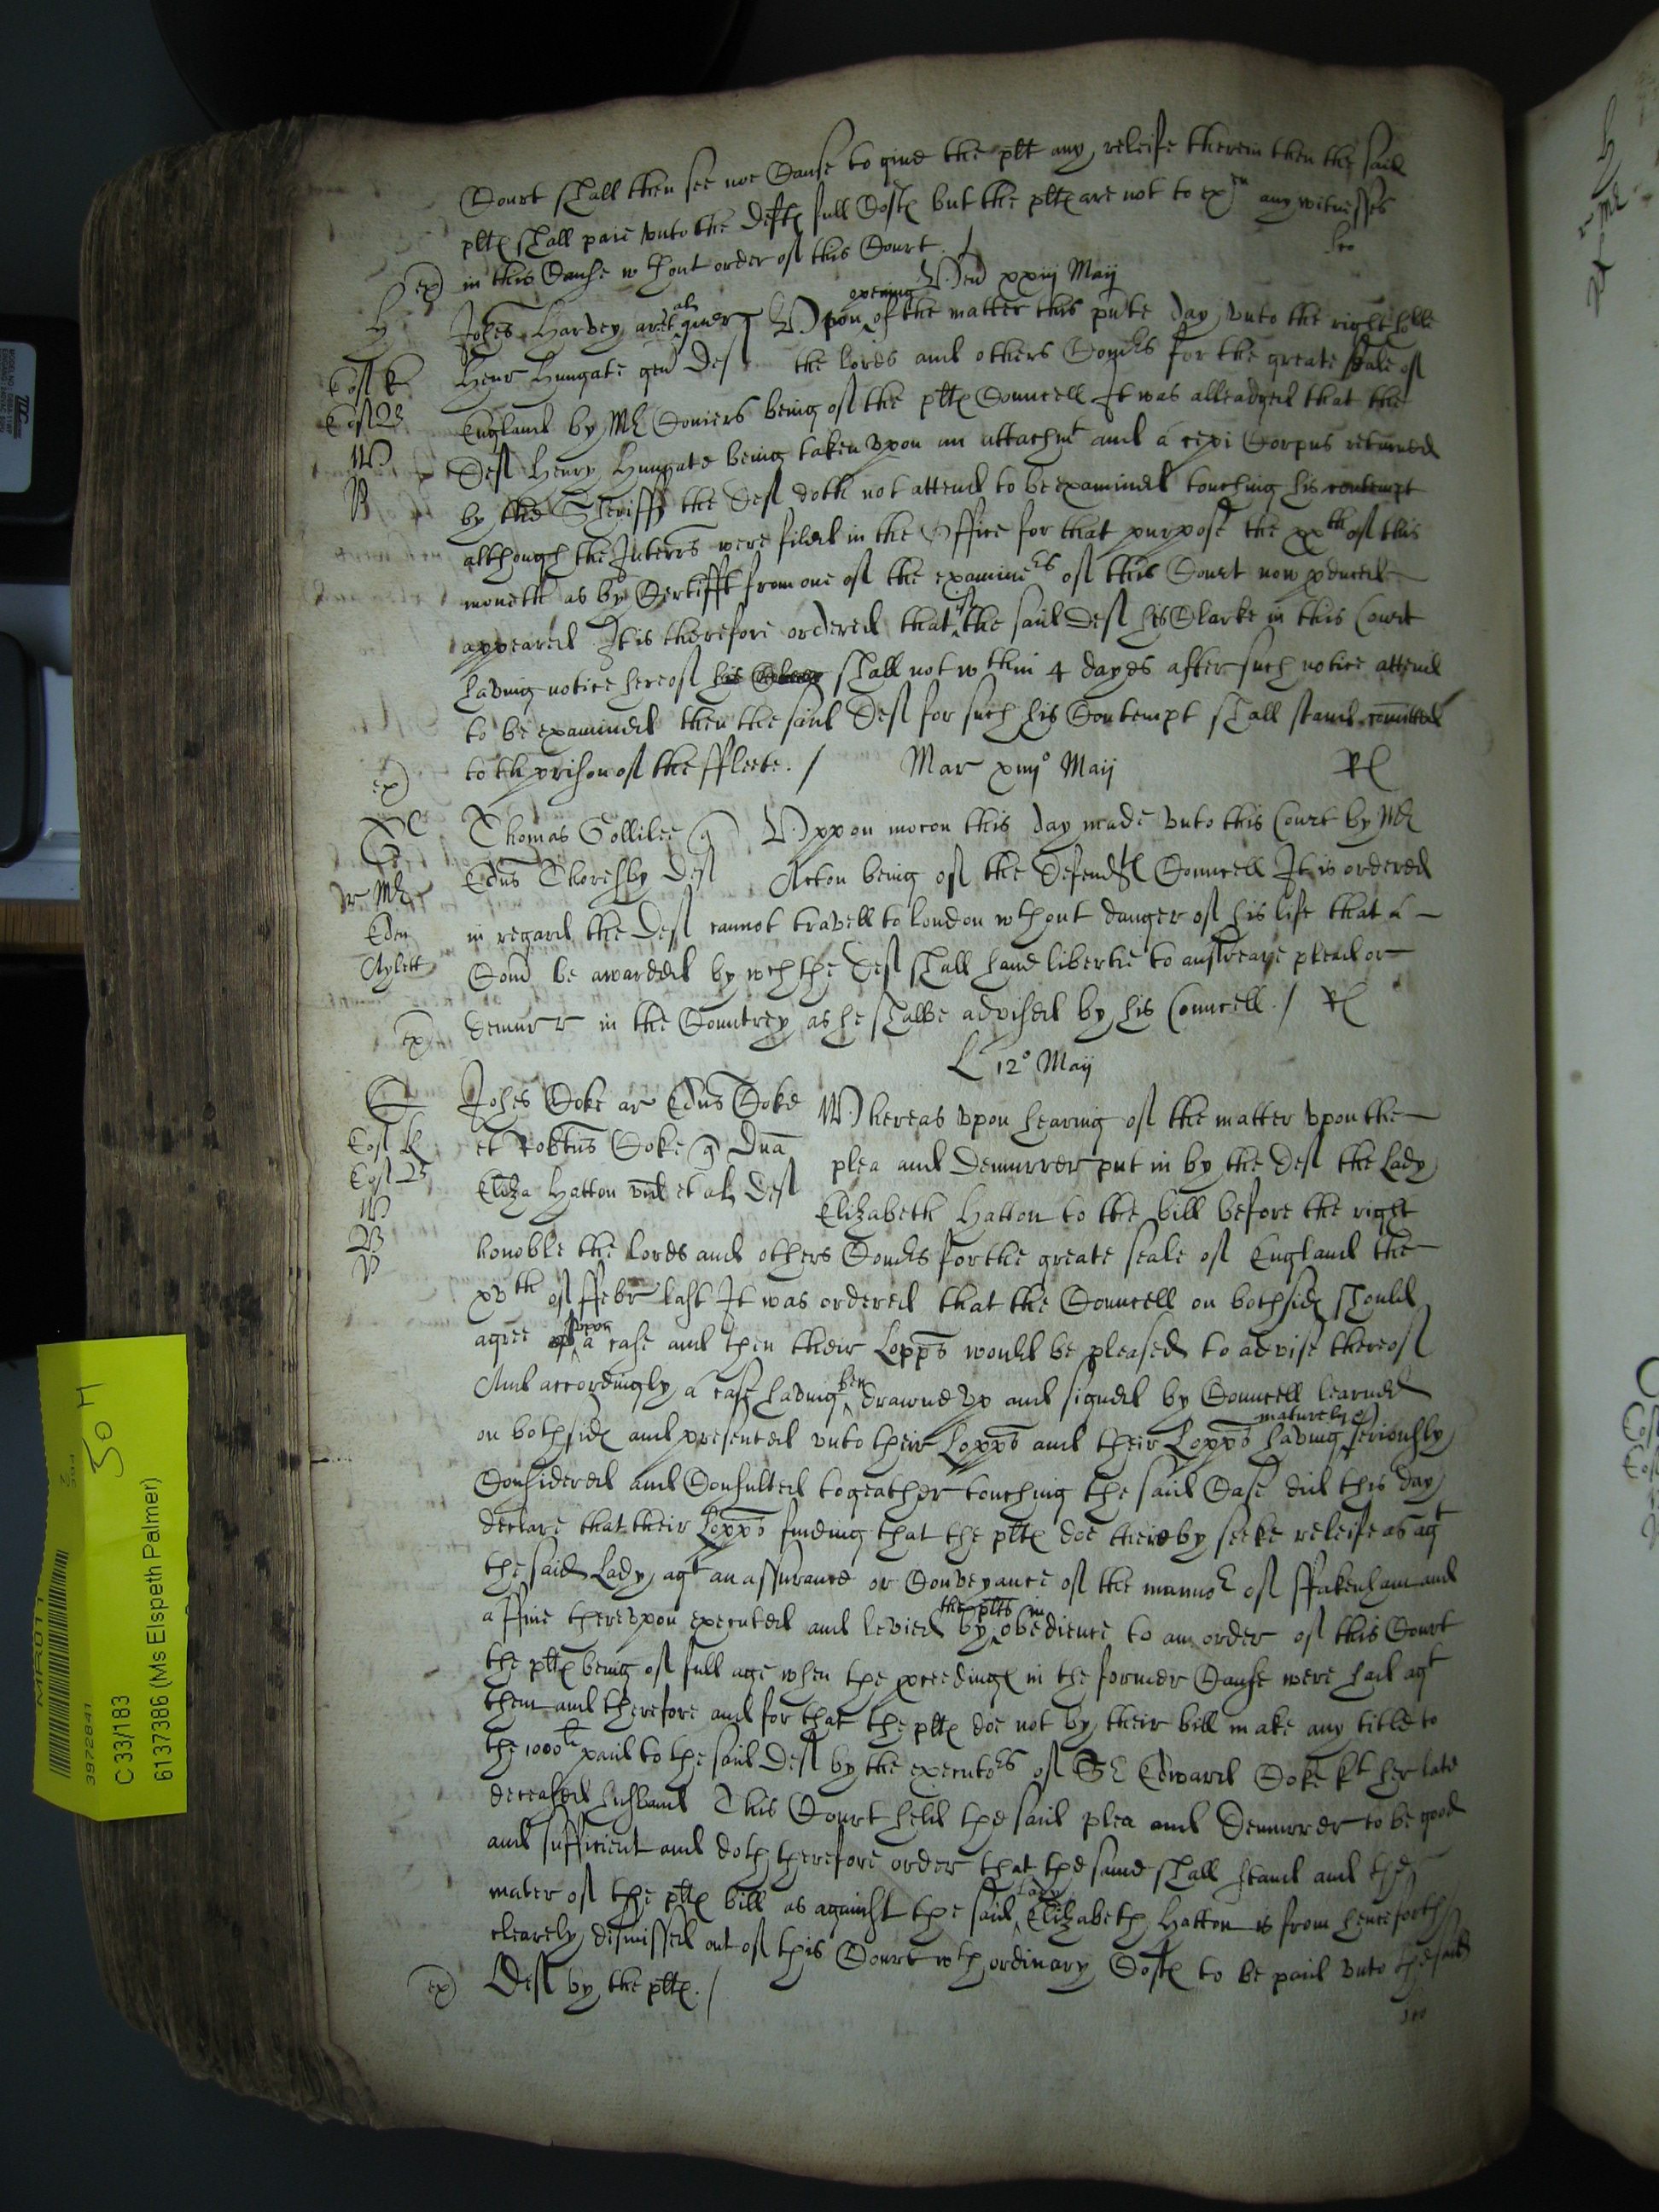 Court shall then see noe Cause to give the plt any releife therein then the said
pltes shall paie unto the Deftes full Costes but the pltes are not to exn any witnesses
ex in this Cause wthout order of this Court /
leo
Ven xxiij Maij
H Johes Harvey ar et al quer Vpon opening of the matter this pnte day unto the right hoble
Henr Hungate gen Def the lords and others Comrs for the greate seale of
Cos k
England by Mr Somers being of the pltes Councell It was alleadged that the
Cos B
Def Henry Hungate being taken upon an attachmt and a cepi Corpus returned
W
by the Sheriffe the Def doth not attend to be examined touching his contempt
B
although the Interrs were filed in the Office for that purpose the xxth of this
moneth as by Certifft from one of the examinrs of this Court now pduced
appeared It is therefore ordered that if the said Def his Clarke in this Court
having notice hereof shall not wthin 4 dayes after such notice attend
to be examined then the said Def for such his Contempt shall stand comitted
ex to th prison of the ffleete. /
Mar xiiij° Maij
Rl
Thomas Gollilee q Vppon mocon this day made unto this Court by Mr
Edus Thoresby Def Acton being of the Defendtes Councell It is ordered
Mr
Eden
in regard the Def cannot travell to london wthout danger of his life that a
Aylett
Com be awarded by wch the Def shall have libertie to answeare plead or
ex demurr in the Countrey as he shalbe advised by his Councell. / Rl
L 12° Maij
C Johes Coke ar Edus Coke Whereas upon hearing of the matter upon the
Cos k et Robtus Coke q Dna plea and Demurrer put in by the Def the Lady
Cos B Eliza Hatton vid et al Def Elizabeth Hatton to the bill before the right
W
B honoble the lords and others Comrs for the greate seale of England the
V xvth of ffebr last It was ordered that the Councell on both sides should
agree upon a case and then their Lopps would be pleased to advise thereof
And accordingly a case having ben drawne up and signed by Councell learned
on both sides and presented unto their Lopps and their Lopps having maturely & seriously
Considered and Consulted togeather touching the said Case did this day
declare that their Lopps finding that the pltes doe thereby seeke releife as agt
the said Lady agt an assurance or Conveyance of the mannor of ffakenham and
a ffine thereupon executed and levied by the plts in obedience to an order of this Court
the pltes being of full age when the pceedinges in the former Cause were had agt
them and therefore and for that the pltes doe not by their bill make any title to
the 1000li paid to the said Def by the executors of Sr Edward Coke kt her late
deceased husband This Court held the said plea and Demurrer to be good
and sufficient and doth therefore order that the same shall stand and the
mater of the pltes bill as against the said Lady Elizabeth Hatton is from henceforth
clearely dismissed out of this Court wth ordinary Costes to be paid unto the said
ex Def by the pltes. /
MR011
3972841
C 33/183
6137386 (Ms Elspeth Palmer)
50 H